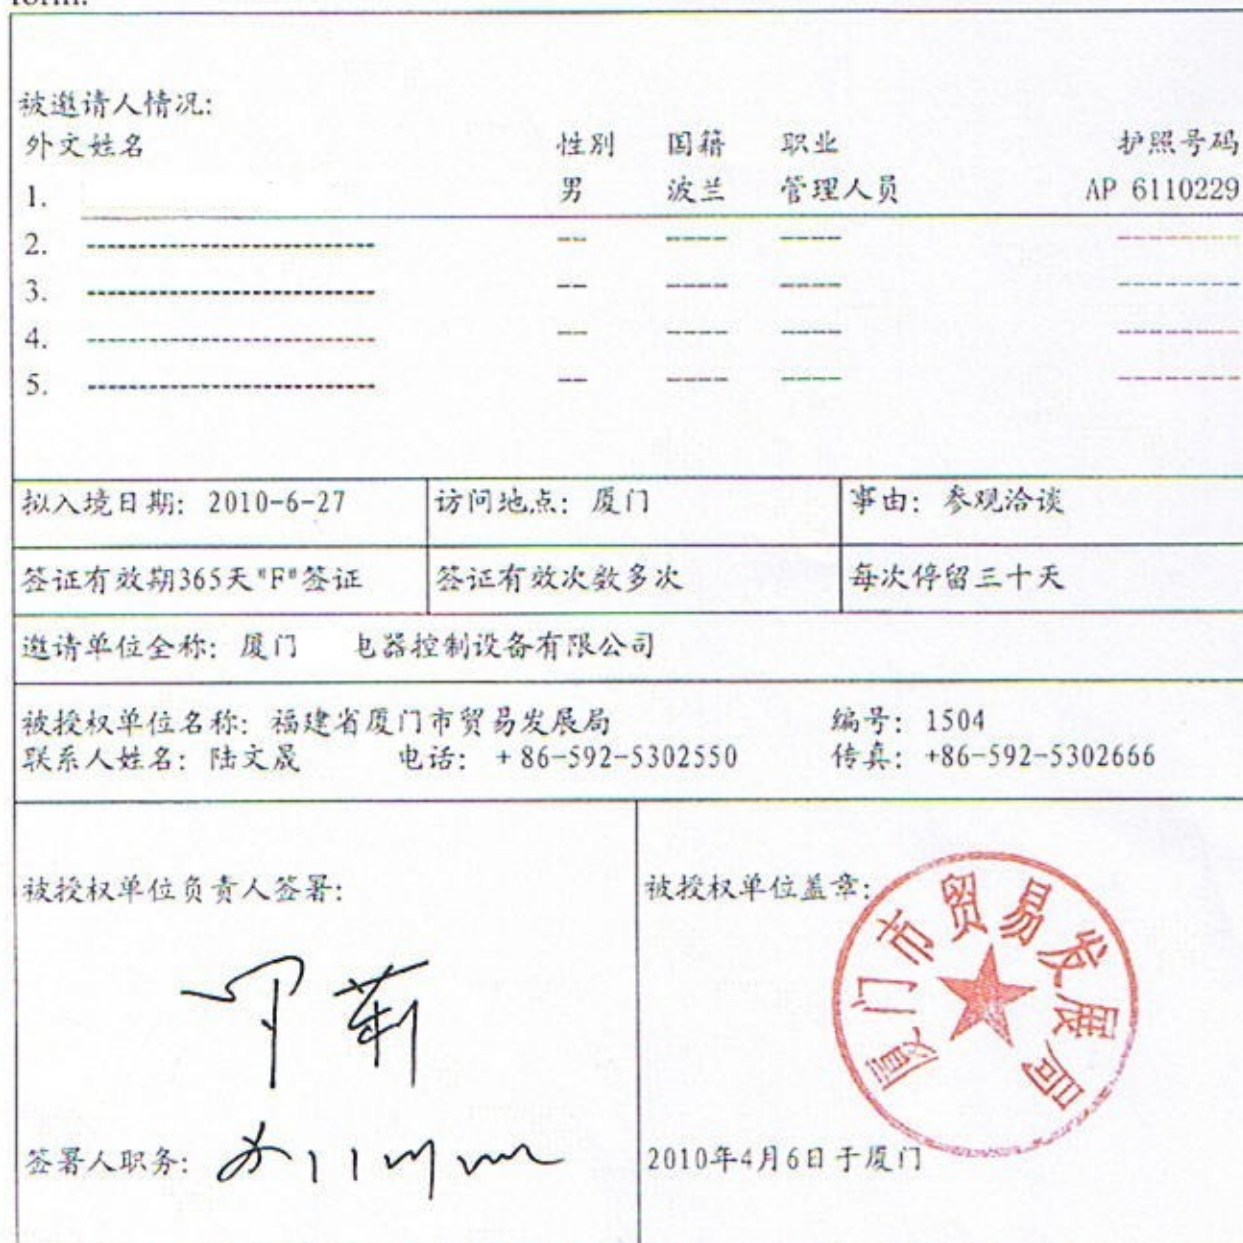 form.
被邀请人情况:
外文姓名 性别 国籍 职业 护照号码
1. 男 波兰 管理人员 AP 6110229
2. ------------------------------ --- ------ ------ ------------
3. ------------------------------ --- ------ ------ ------------
4. ------------------------------ --- ------ ------ ------------
5. ------------------------------ --- ------ ------ ------------
拟入境日期: 2010-6-27 访问地点: 厦门 事由: 参观洽谈
签证有效期365天"F"签证 签证有效次数多次 每次停留三十天
邀请单位全称: 厦门 电器控制设备有限公司
被授权单位名称: 福建省厦门市贸易发展局 编号: 1504
联系人姓名: 陆文晟 电话: +86-592-5302550 传真: +86-592-5302666
被授权单位负责人签署: 被授权单位盖章:
厦门市贸易发展局
签署人职务: 2010年4月6日于厦门